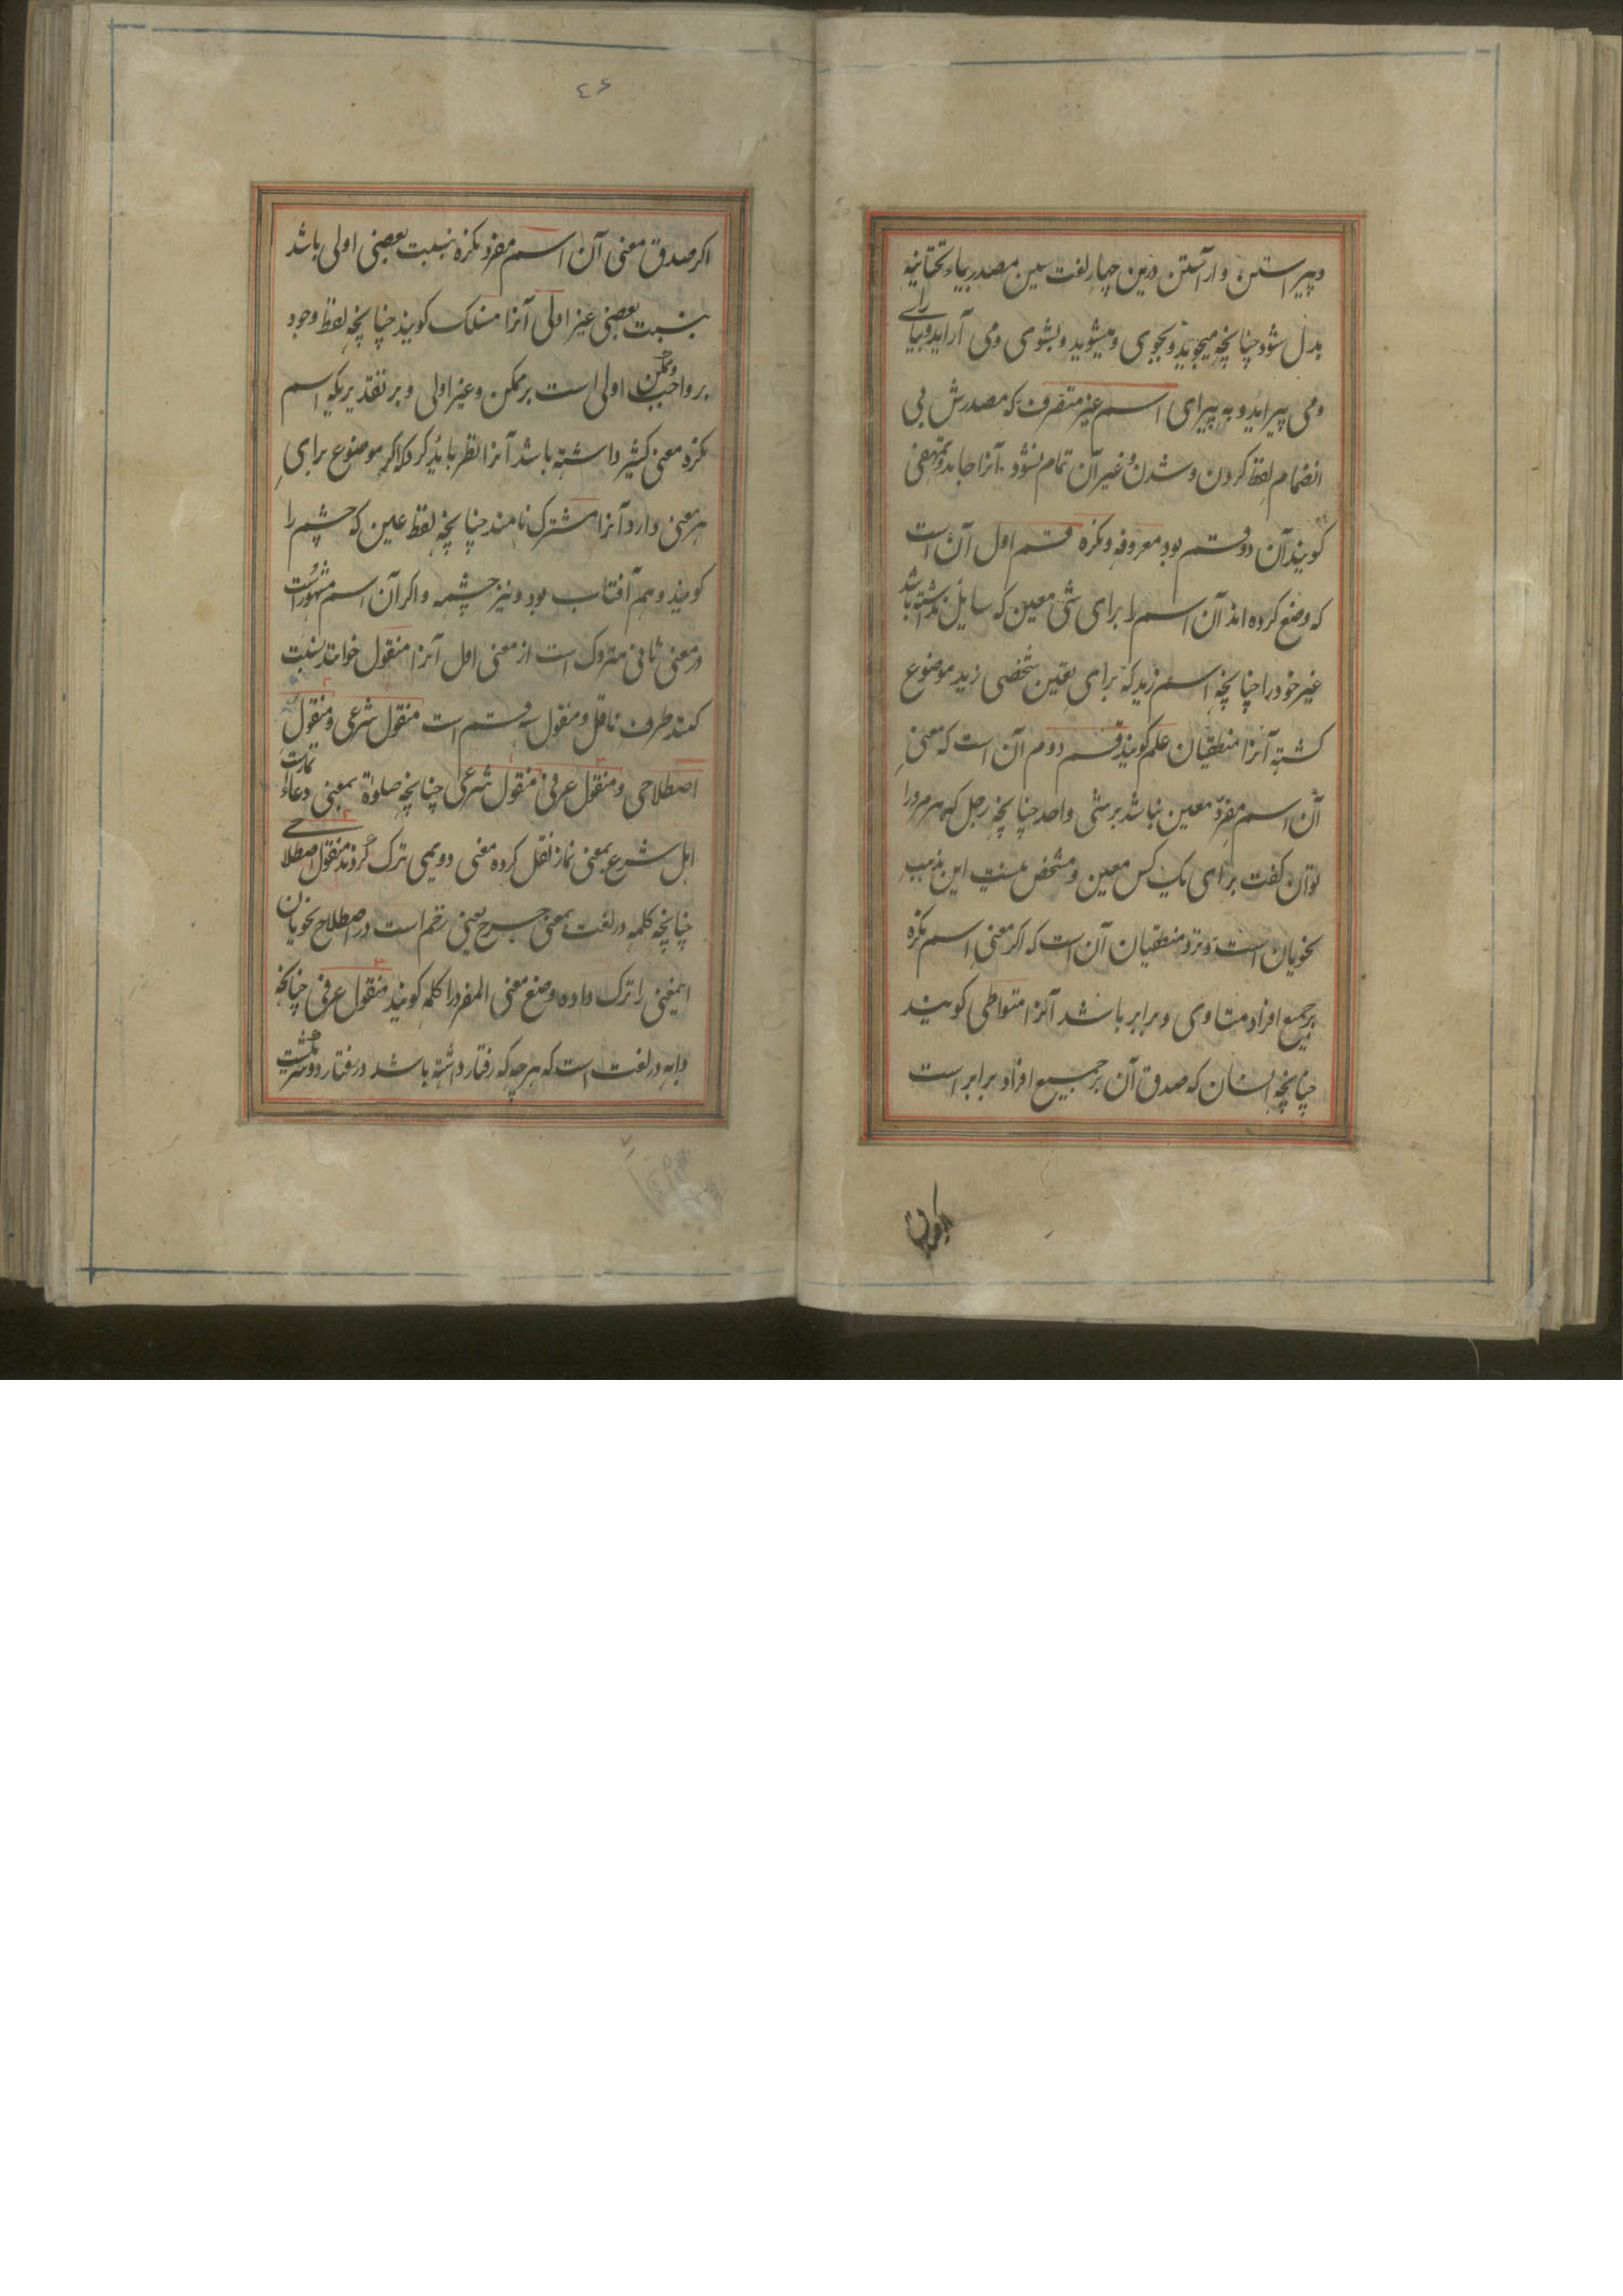 وپیراستن وآراستن درین چهار لغت سین مصدر بیاء تحتانیه
بدل شود چنانچه میجوید وبجوی ومیشوید وبشوی ومی آراید وبیارای
ومی پیراید وبه پیرای اسم غیر متصرف که مصدرش بی
انضمام لفظ کردن وشدن وغیر آن تمام نشود آنرا جامد
کویند آن دو قسم بود معروفه ونکره قسم اول آن است
که وضع کرده اند آن اسم را برای شی معین که
غیر خود را چنانچه اسم زید که برای تعین شخصی زید موضوع
کشته آنرا منطقیان علم کویند قسم دوم آن است که معنی
آن اسم مفرد معین نباشد بر شی واحد چنانچه رجل که هر مرد را
توان کفت برای یک کس معین ومشخص نیست این مذهب
نحویان است ونزد منطقیان آن است که اکر معنی اسم نکره
بر جمیع افراد متساوی وبرابر باشد آنرا متواطی کویند
چنانچه انسان که صدق آن بر جمیع افراد برابر است
٤۶
اکر صدق معنی آن اسم مفرد نکره بنسبت بعضی اولی باشد
بنسبت بعضی غیر اولی آنرا مشکک کویند چنانچه لفظ وجود
بر واجب اولی است بر ممکن وغیر اولی وبر تقدیریکه اسم
نکره معنی کثیر داشته باشد آنرا نظر باید کرد که اکر موضوع برای
هر معنی دارد آنرا مشترک نامند چنانچه لفظ عین که چشم را
کویند وهم آفتاب بود ونیز چشمه واکر آن اسم مشهور است
در معنی ثانی متروک است از معنی اول آنرا منقول خوانند نسبت
کنند طرف ناقل ومنقول سه قسم است منقول شرعی ومنقول
اصطلاحی ومنقول عرفی منقول شرعی چنانچه صلوة بمعنی دعاء
اهل شرع بمعنی نماز نقل کرده معنی دویمی ترک کردند منقول اصطلاحی
چنانچه کلمه در لغت بمعنی جرح یعنی زخم است در اصطلاح نحویان
اینمعنی را ترک داده وضع معنی المفرد را کلمه کویند منقول عرفی چنانکه
دابه در لغت است که هر چه که رفتار داشته باشد در رفتار